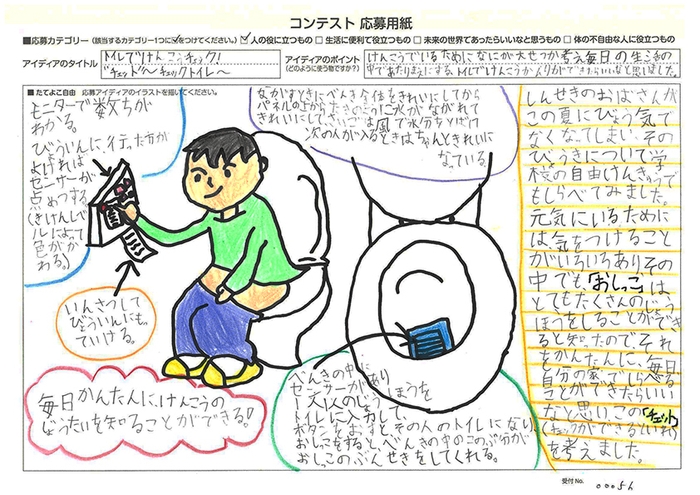 コンテスト 応募用紙
■応募カテゴリー（該当するカテゴリー1つに✓をつけてください。）☑人の役に立つもの □生活に便利で役立つもの □未来の世界であったらいいなと思うもの □体の不自由な人に役立つもの
アイディアのタイトル
トイレでけんこうチェック！
〜チェット
チェックトイレ〜
アイディアのポイント
（どのように使う物ですか？）
けんこうでいるためになにが大せつか考え毎日の生活の
中であたりまえにするトイレでけんこうか
できたらいいなと思いました。
■たてよこ自由 応募アイディアのイラストを描いてください。
モニターで数ちが
わかる。
びょういんに、行った方が
よければ
センサーが
点めつする
(きけんレベ
ルによって
色がか
わる。)
いんさつして
びょういんにもっ
ていける。
毎日かんたんに、けんこうの
じょうたいを知ることができる！
ながすときにべんき全体をきれいにしてから
パネルの上から
水がながれて
きれいにして、さいごは風で水分をとばす
次の人が入るときはちゃんときれいに
なっている。
べんきの中に
センサーがあり
1人1人のじょうほうを
トイレに入力して、
ボタンをおすとその人のトイレになり
おしっこをすると、べんきの中のこのぶ分が
おしっこのぶんせきをしてくれる。
しんせきのおばさんが
この夏にびょう気で
なくなってしまい、その
びょうきについて学
校の自由けんきゅうで
もしらべてみました。
元気にいるために
は、気をつけること
がいろいろあり、その
中でも、「おしっこ」は
とてもたくさんのじょう
ほうをしることができ
ると知ったのでそれ
をかんたんに、毎日
自分の家でしらべる
ことができたらいい
なと思い、この「チェット」
(チェックができるといれ)
を考えました。
受付 No.